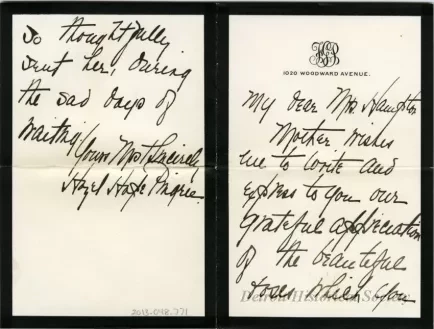 1020 WOODWARD AVENUE.
My dear Mrs. Hampton
Mother wishes
me to write and
express to you our
grateful appreciation
of the beautiful
roses which you
Detroit Historical Society
so thoughtfully
sent her, during
the sad days of
waiting.
Yours Most Sincerely
Hazel Hope Pingree.
2013.048.771